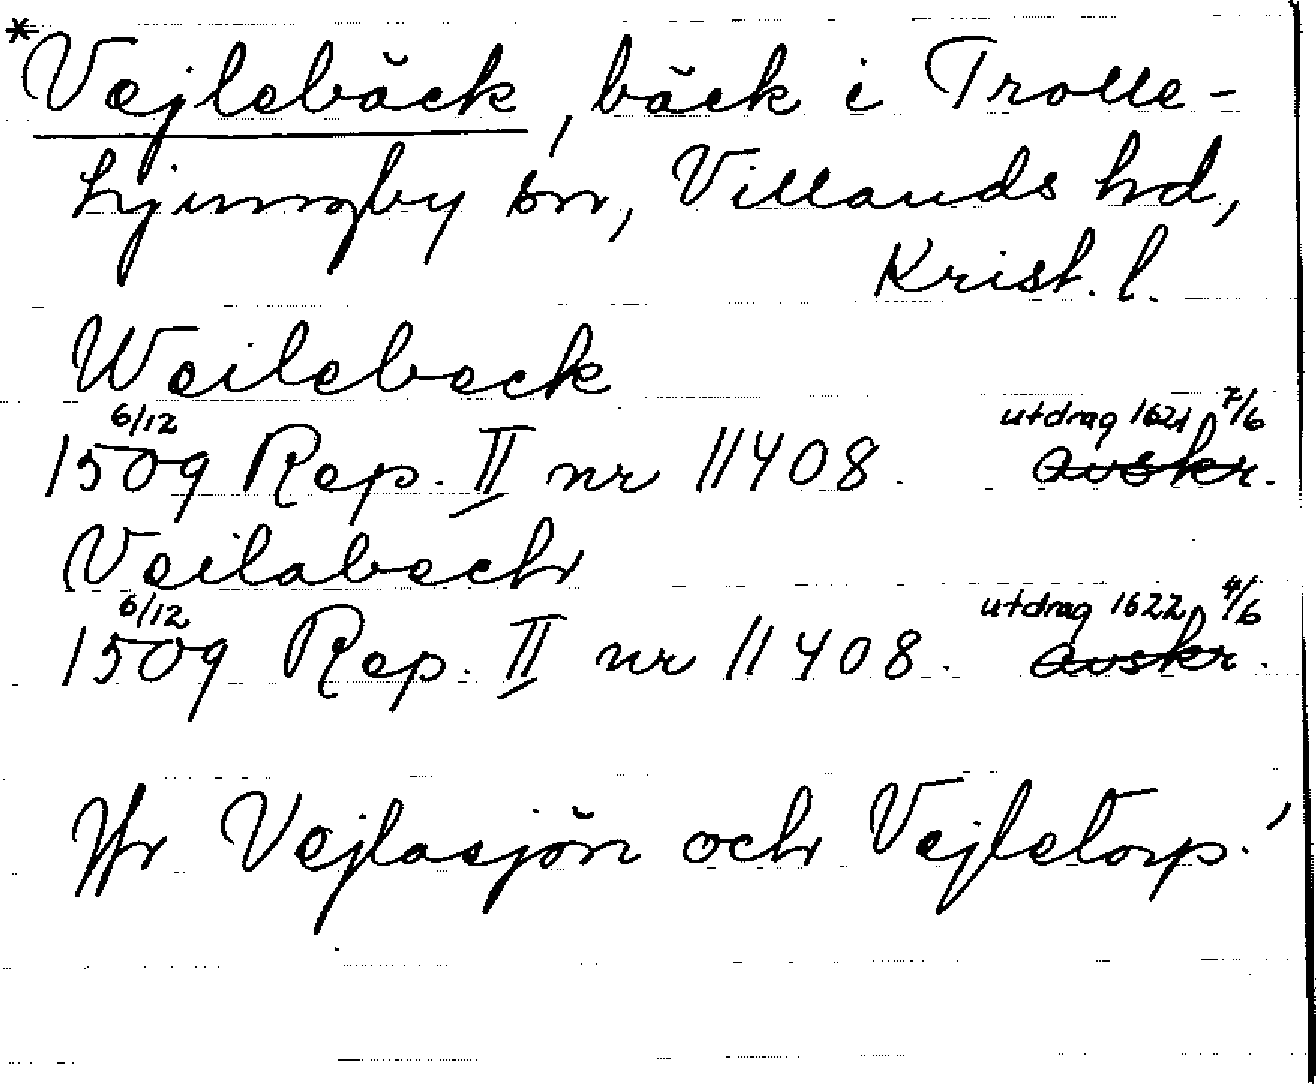 *Vejlebäck, bäck i Trolle-
ljungby sn, Villands hd,
Krist. l.
Weilebeck
6/12 utdrag 1621 7/6
1509 Rep. II nr 11408. avskr.
Veilabech
6/12 utdrag 1622 4/6
1509 Rep. II nr 11408. avskr.
Jfr Vejlasjön och Vejletorp.